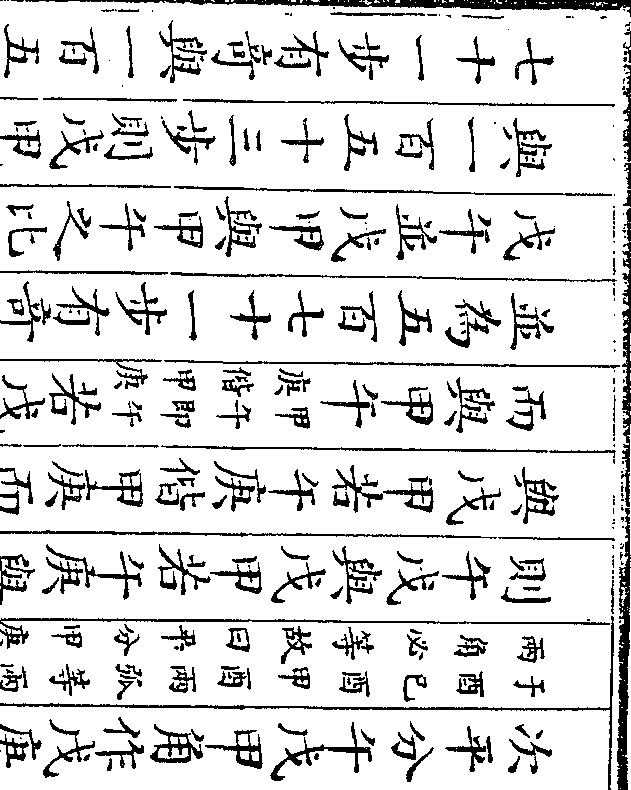 次平分午戊甲角作戊庚
于酉己酉甲酉兩弧等兩
兩角必等故曰平分甲庚
則午戊與戊甲若午庚與
與戊甲若午庚偕甲庚而
而與甲午甲午即午庚偕甲庚若戊
並為五百七十一步有奇
戊午並戊甲與甲午之比
與一百五十三步則戊甲
七十一步有奇與一百五